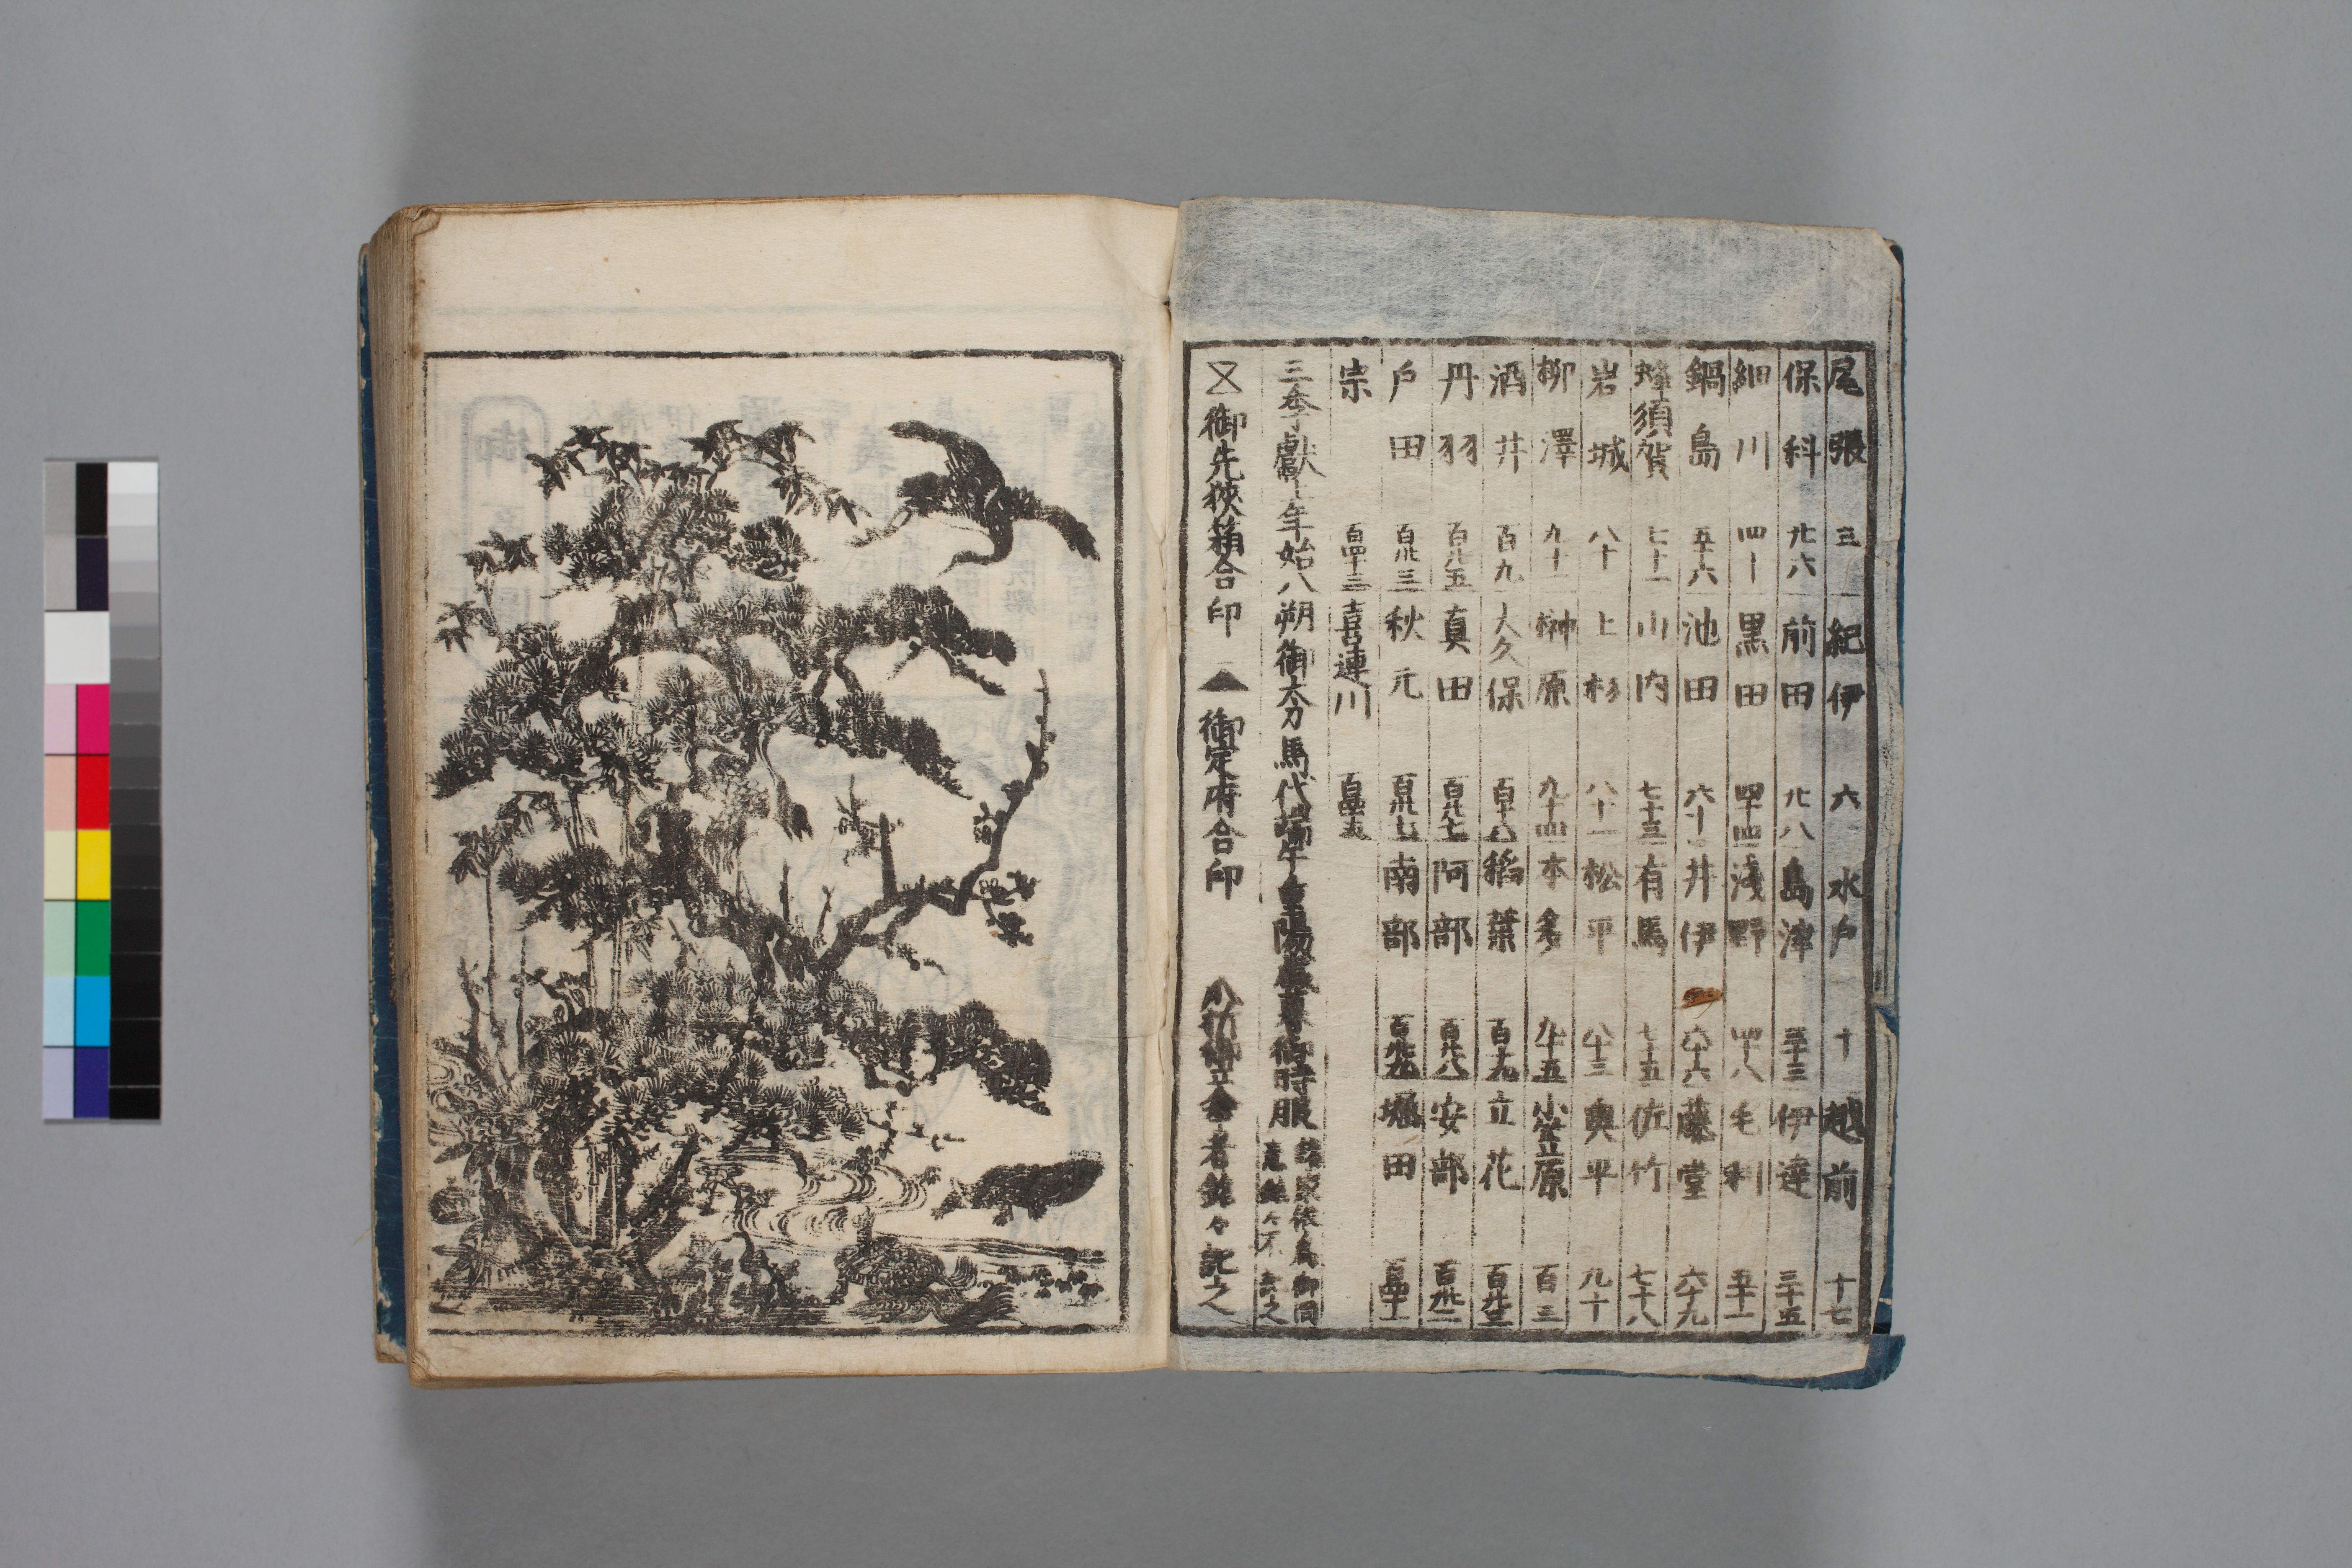 尾張 三 紀伊 六 水戸 十 越前 十七
保科 廿六 前田 廿八 島津 三十三 伊達 三十五
細川 四十 黒田 四十四 淺野 四十八 毛利 五十一
鍋島 五十六 池田 六十一 井伊 六十六 藤堂 六十九
蜂須賀 七十一 山内 七十三 有馬 七十五 佐竹 七十八
岩城 八十 上杉 八十一 松平 八十三 奥平 九十
柳澤 九十一 榊原 九十四 本多 九十五 小笠原 百三
酒井 百九 大久保 稲葉 百十九 立花
丹羽 百廿五 真田 百廿七 阿部 百廿八 安部
戸田 百卅三 秋元 百卅七 南部 百卅九 堀田 百四十一
宗 百四十三 喜連川 百四十五
三季献上年始八朔御太刀馬代端午重陽歳暮御時服 諸家依為御同
意銘々不書之
御先狹箱合印 御定府合印 者銘々記之